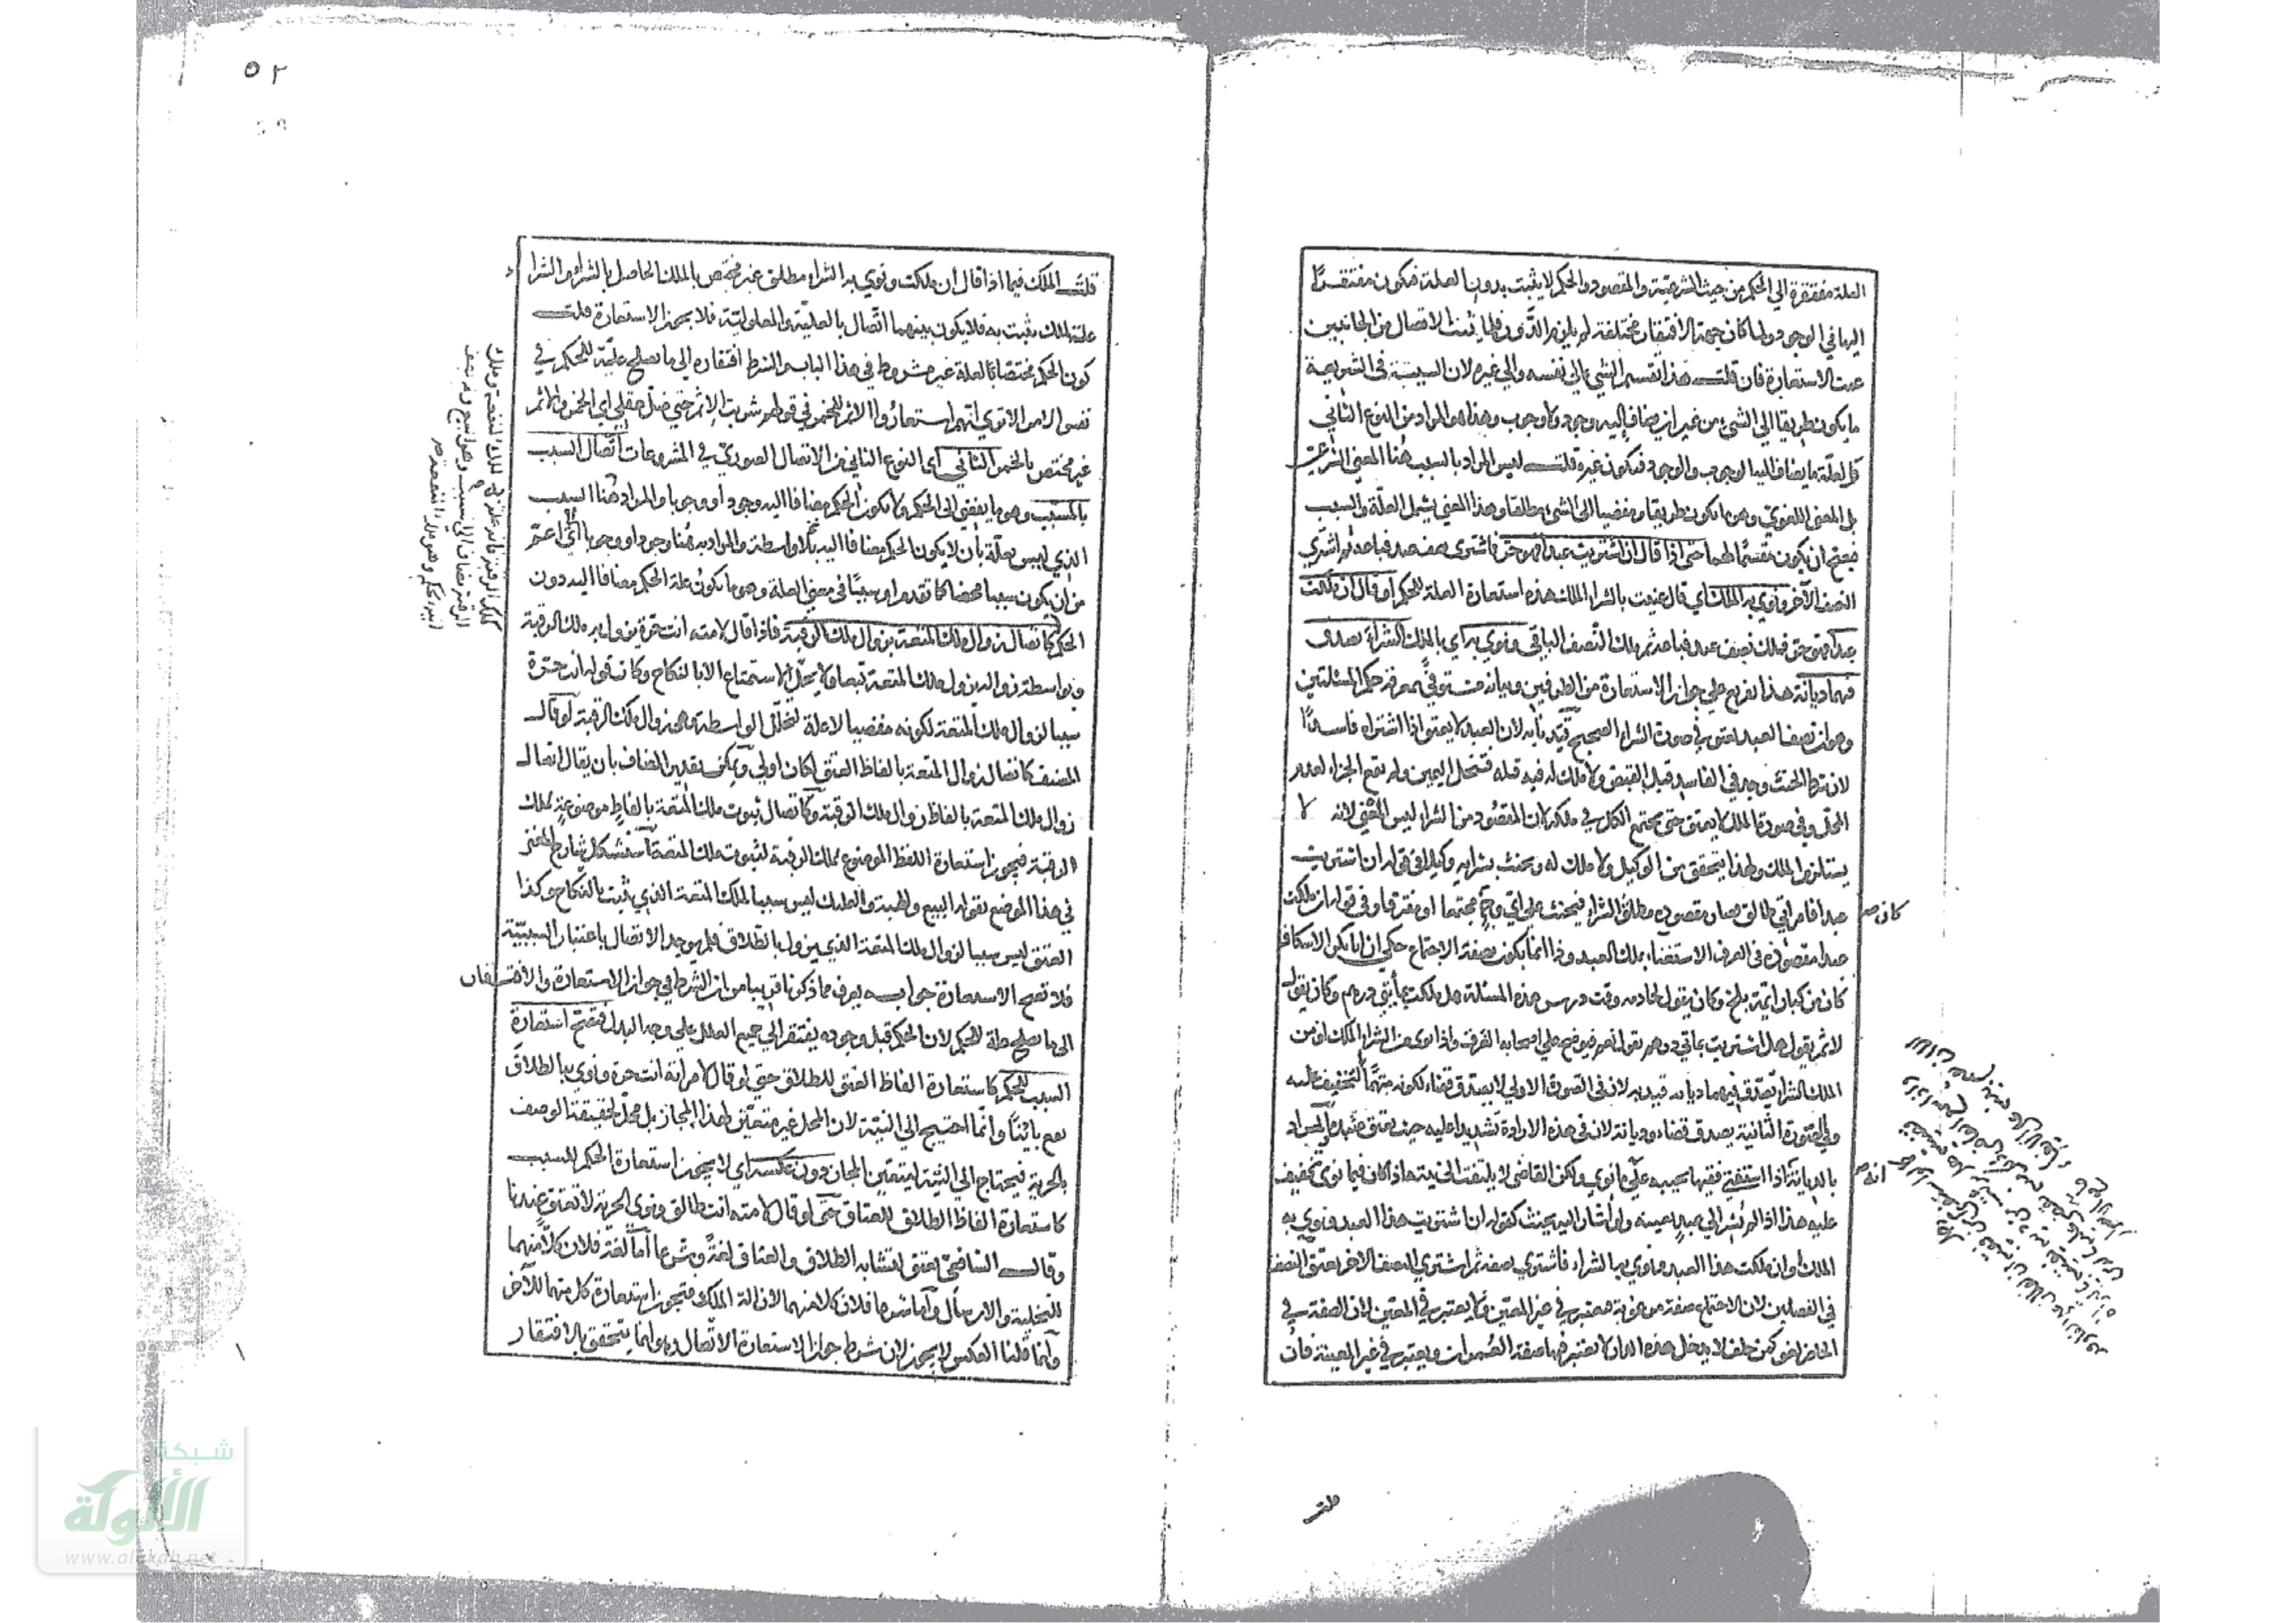 العلة مفتقرة الي الحكم من حيث الشرعية والمقصود والحكم لا يثبت بدون العلة فيكون مفتقرا
اليها في الوجود ولما كان جهة الافتقار مختلفة لم يلزم الدور فلما ثبت الاتصال من الجانبين
عمت الاستعارة فان قلت هذا تقسيم الشيء الي نفسه والي غيره لان السببية في الشريعة
ما يكون طريقا الي الشيء من غير ان يضاف اليه وجود ولا وجوب وهذا هو المراد من النوع الثاني
والعلة ما يضاف اليها الوجوب والوجود فيكون غيره قلت ليس المراد بالسبب هنا المعني الشرعي
بل المعني اللغوي وهو ما يكون طريقا ومفضيا الي الشيء مطلقا وهذا المعني يشمل العلة والسبب
فيصح ان يكون مقسما لهما حتي اذا قال ان اشتريت عبدا فهو حر فاشتري نصف عبد فباعه ثم اشتري
النصف الآخر ونوي به الملك اي قال عنيت بالشراء الملك هذه استعارة العلة للحكم او قال ان ملكت
عبدا فهو حر فملك نصف عبد فباعه ثم ملك النصف الباقي ونوي به اي بالملك الشراء يصدق
فيهما ديانة هذا تفريع علي جواز الاستعارة من الطرفين وبيانه مستوفي معرفة حكم المسئلتين
وهو ان نصف العبد يعتق في صورة الشراء الصحيح قيدنا به لان العبد لا يعتق اذا اشتراه فاسدا
لان شرط الحنث وجد في الفاسد قبل القبض ولا ملك له فيه قبله فتنحل اليمين ولم يقع الجزاء لعدم
المحل وفي صورة الملك لا يعتق حتي يجتمع الكل في ملكه لان المقصود من الشراء ليس الغني لانه لا
يستلزم الملك ولهذا يتحقق من الوكيل ولا ملك له ويحنث بشرائه وكيلا في قوله ان اشتريت
عبدا فامراتي طالق فصار مقصوده مطلق الشراء فيحنث علي اي وجه مجتمعا او متفرقا وفي قوله ان ملكت
كان صح
عبدا مقصوده في العرف الاستغناء بملك العبد وذا انما يكون بصفة الاجتماع حكي ان ابا بكر الاسكاف
كان من كبار ائمة بلخ وكان يقول لخادمه وقت درس هذه المسئلة هل ملكت مأتي درهم وكان يقول
لا ثم يقول هل اشتريت بماتي درهم يقول نعم فيوضح علي اصحابه الفرق واذا نوي من الشراء الملك او من
الملك الشراء يصدق فيهما ديانة قيد به لان في الصورة الاولي لا يصدق قضاء لكونه متهما لتخفيف عليه
وفي الصورة الثانية يصدق قضاء وديانة لان في هذه الارادة تشديدا عليه حيث يعتق عبده المراد
بالديانة اذا استفتي فقيها يجيبه علي ما نوي ولكن القاضي لا يلتفت الي نيته اذا كان فيما نوي تخفيف
انه صح
عليه هذا اذا لم يشر الي عبد بعينه ولو اشار اليه يحنث كقوله ان اشتريت هذا العبد ونوي به
الملك او ان ملكت هذا العبد ونوي به الشراء فاشتري نصفه ثم اشتري النصف الاخر يعتق النصف
في الفصلين لان الاجتماع صفة مرغوبة فيعتبر في غير المعين ولا يعتبر في المعين لان الصفة في
الحاضر لغو كمن حلف لا يدخل هذه الدار لا تعتبر فيها صفة العمران ويعتبر في غير المعينة فان
قلت
٥٢
قلت الملك فيما اذا قال ان ملكت ونوي به الشراء مطلق غير مختص بالملك الحاصل بالشراء والشراء
علة لملك يثبت به فلا يكون بينهما اتصال بالعلية والمعلولية فلا يجوز الاستعارة قلت
كون الحكم مختصا بالعلة غير مشروط في هذا الباب والشرط افتقاره الي ما يصلح علة للحكم في
نفس الامر الا تري انهم استعاروا الاثم للخمر في قولهم شربت الاثم حتي ضل عقلي اي الخمر والاثم
غير مختص بالخمر الثاني اي النوع الثاني من الاتصال الصوري في المشروعات اتصال السبب
بالمسبب وهو ما يفضي الي الحكم ولا يكون الحكم مضافا اليه وجودا ووجوبا والمراد هنا السبب
الذي ليس بعلة بان لا يكون الحكم مضافا اليه بلا واسطة والمراد به هنا وجودا ووجوبا اي اعم
من ان يكون سببا محضا كما تقدم او سببا في معني العلة وهو ما يكون علة الحكم مضافا اليه دون
الحكم كاتصال زوال ملك المتعة بزوال ملك الرقبة فاذا قال لامته انت حرة يزول به ملك الرقبة
وبواسطة زواله يزول ملك المتعة تبعا ولا يحل الاستمتاع الا بالنكاح وكان قوله انت حرة
سببا لزوال ملك المتعة لكونه مفضيا لا علة لتخلل الواسطة وهو زوال ملك الرقبة لو قال
المصنف كاتصال زوال المتعة بالفاظ العتق لكان اولي ويمكن تقدير المضاف بان يقال اتصال
زوال ملك المتعة بالفاظ زوال ملك الرقبة وكاتصال ثبوت ملك المتعة بالفاظ موضوعة لملك
الرقبة فيجوز استعارة اللفظ الموضوع لملك الرقبة لثبوت ملك المتعة استشكل شارح المغني
في هذا الموضع بقوله البيع والهبة والتمليك ليس سببا لملك المتعة الذي يثبت بالنكاح وكذا
العتق ليس سببا لزوال ملك المتعة الذي يزول بالطلاق فلم يوجد الاتصال باعتبار السببية
فلا تصح الاستعارة جوابه يعرف مما ذكرنا قريبا من ان الشرط في جواز الاستعارة والافتقار
الي ما يصلح علة للحكم لان الحكم قبل وجوده يفتقر الي جميع العلل علي وجه البدل فتصح استعارة
السبب للحكم كاستعارة الفاظ العتق للطلاق حتي لو قال لامراته انت حرة ونوي به الطلاق
يقع بائنا وانما احتيج الي النية لان المحل غير متعين لهذا المجاز بل محل لحقيقة الوصف
بالحرية فيحتاج الي النية ليتعين المجاز دون عكسه اي لا يجوز استعارة الحكم للسبب
كاستعارة الفاظ الطلاق للعتاق حتي لو قال لامته انت طالق ونوي الحرية لا تعتق عندنا
وقال الشافعي يعتق لتشابه الطلاق والعتاق لغة وشرعا اما لغة فلان كلا منهما
للتخلية والارسال واما شرعا فلان كلا منهما لازالة الملك فتجوز استعارة كل منهما للآخر
وانما قلنا العكس لا يجوز لان شرط جواز الاستعارة الاتصال وهو انما يتحقق بالافتقار
شبكة
الألوكة
www.alukah.net